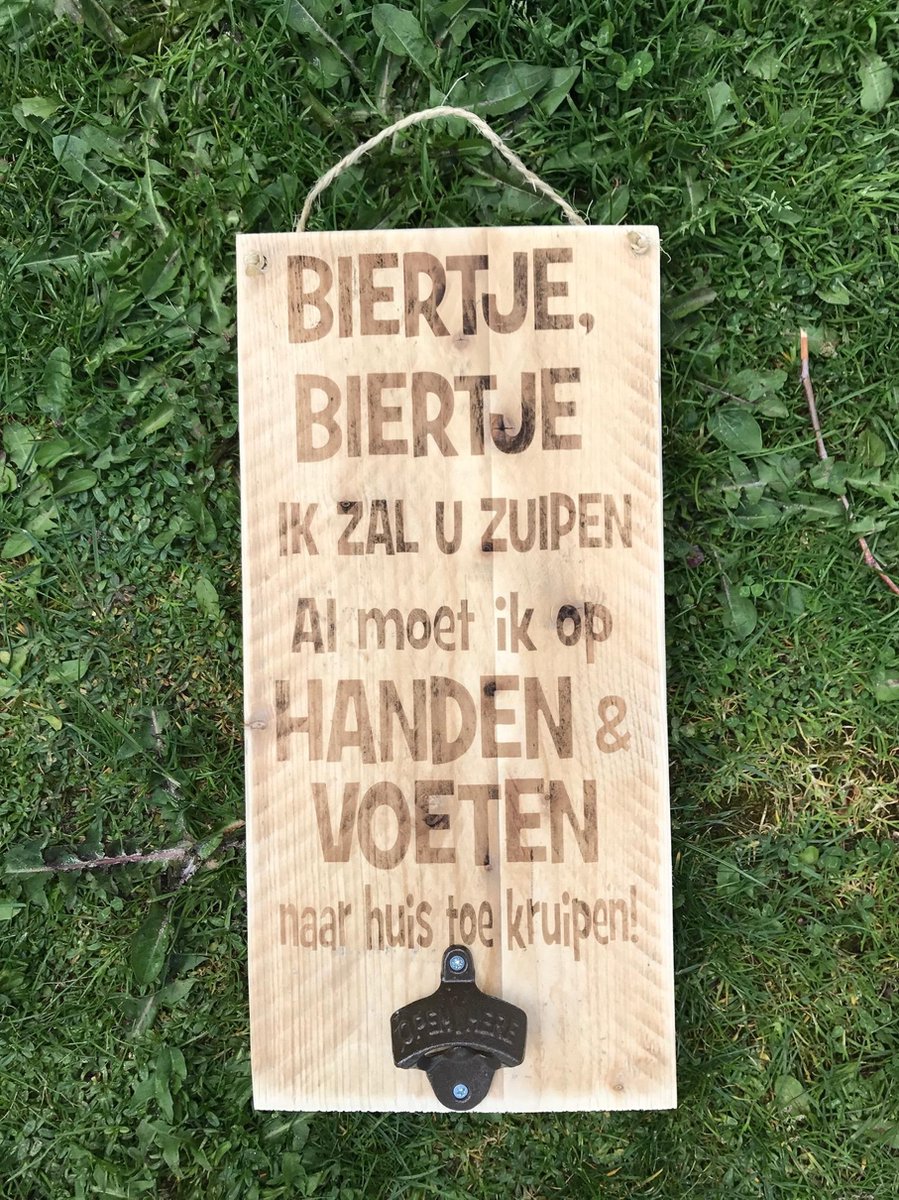 BIERTJE,
BIERTJE
IK ZAL U ZUIPEN
Al moet ik op
HANDEN &
VOETEN
naar huis toe kruipen!
OPEN HERE